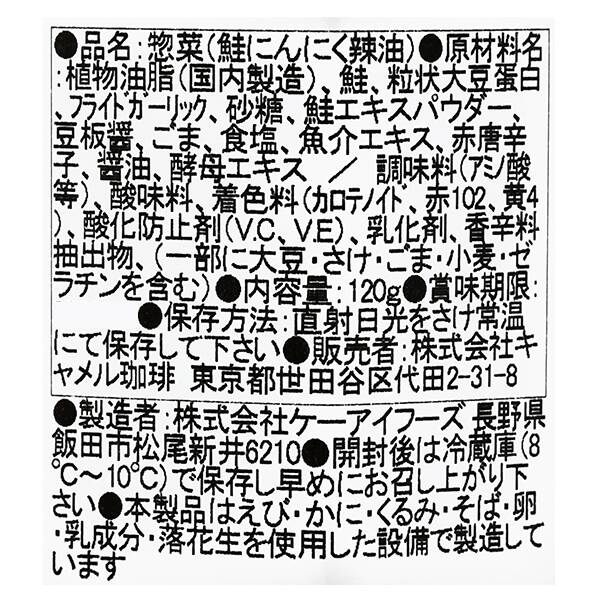 ●品名:惣菜(鮭にんにく辣油)●原材料名
:植物油脂(国内製造)、鮭、粒状大豆蛋白
、フライドガーリック、砂糖、鮭エキスパウダー、
豆板醤、ごま、食塩、魚介エキス、赤唐辛
子、醤油、酵母エキス ／ 調味料(アミノ酸
等)、酸味料、着色料(カロテノイド、赤102、黄4
)、酸化防止剤(V.C、V.E)、乳化剤、香辛料
抽出物、(一部に大豆・さけ・ごま・小麦・ゼ
ラチンを含む)●内容量:120g●賞味期限:
●保存方法:直射日光をさけ常温
にて保存して下さい●販売者:株式会社キ
ャメル珈琲 東京都世田谷区代田2-31-8
●製造者:株式会社ケーアイフーズ 長野県
飯田市松尾新井6210●開封後は冷蔵庫(8
℃～10℃)で保存し早めにお召し上がり下
さい●本製品はえび・かに・くるみ・そば・卵
・乳成分・落花生を使用した設備で製造して
います